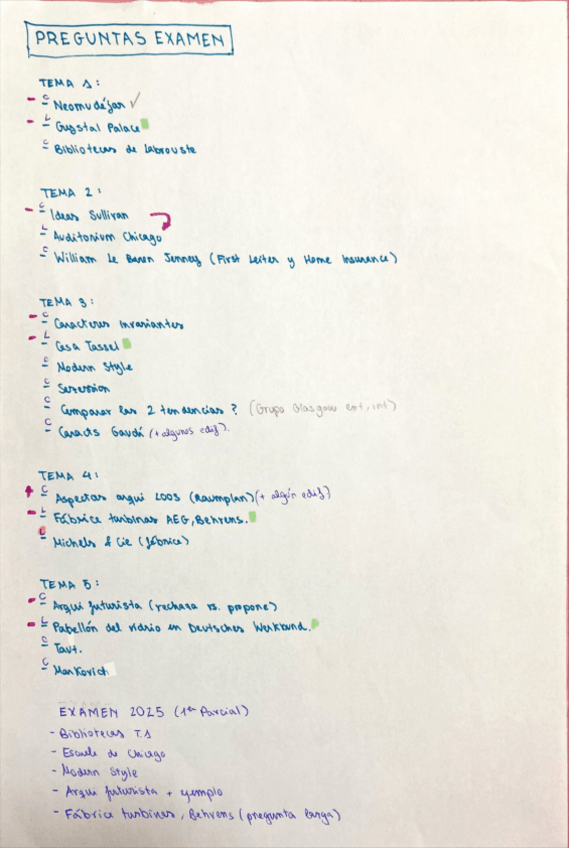 PREGUNTAS EXAMEN
TEMA 1:
C - Neomudéjar ✓
L - Crystal Palace
C - Bibliotecas de Labrouste
TEMA 2:
C - Ideas Sullivan
L - Auditorium Chicago
C - William Le Baron Jenney (First Leiter y Home Insurance)
TEMA 3:
C - Caracteres Invariantes
L - Casa Tassel
C - Modern Style
C - Secession
C - Comparar las 2 tendencias? (Grupo Glasgow ext, int)
C - Caracts Gaudí (+ algunos edif).
TEMA 4:
C - Aspectos arqui Loos (Raumplan) (+ algún edif)
L - Fábrica turbinas AEG, Behrens.
C - Michels & Cie (fábrica)
TEMA 5:
C - Arqui futurista (rechaza vs. propone)
L - Pabellón del vidrio en Deutsches Werkbund.
C - Taut.
C -
EXAMEN 2025 (1er Parcial)
- Bibliotecas T.1
- Escuela de Chicago
- Modern Style
- Arqui futurista + ejemplo
- Fábrica turbinas, Behrens (pregunta larga)